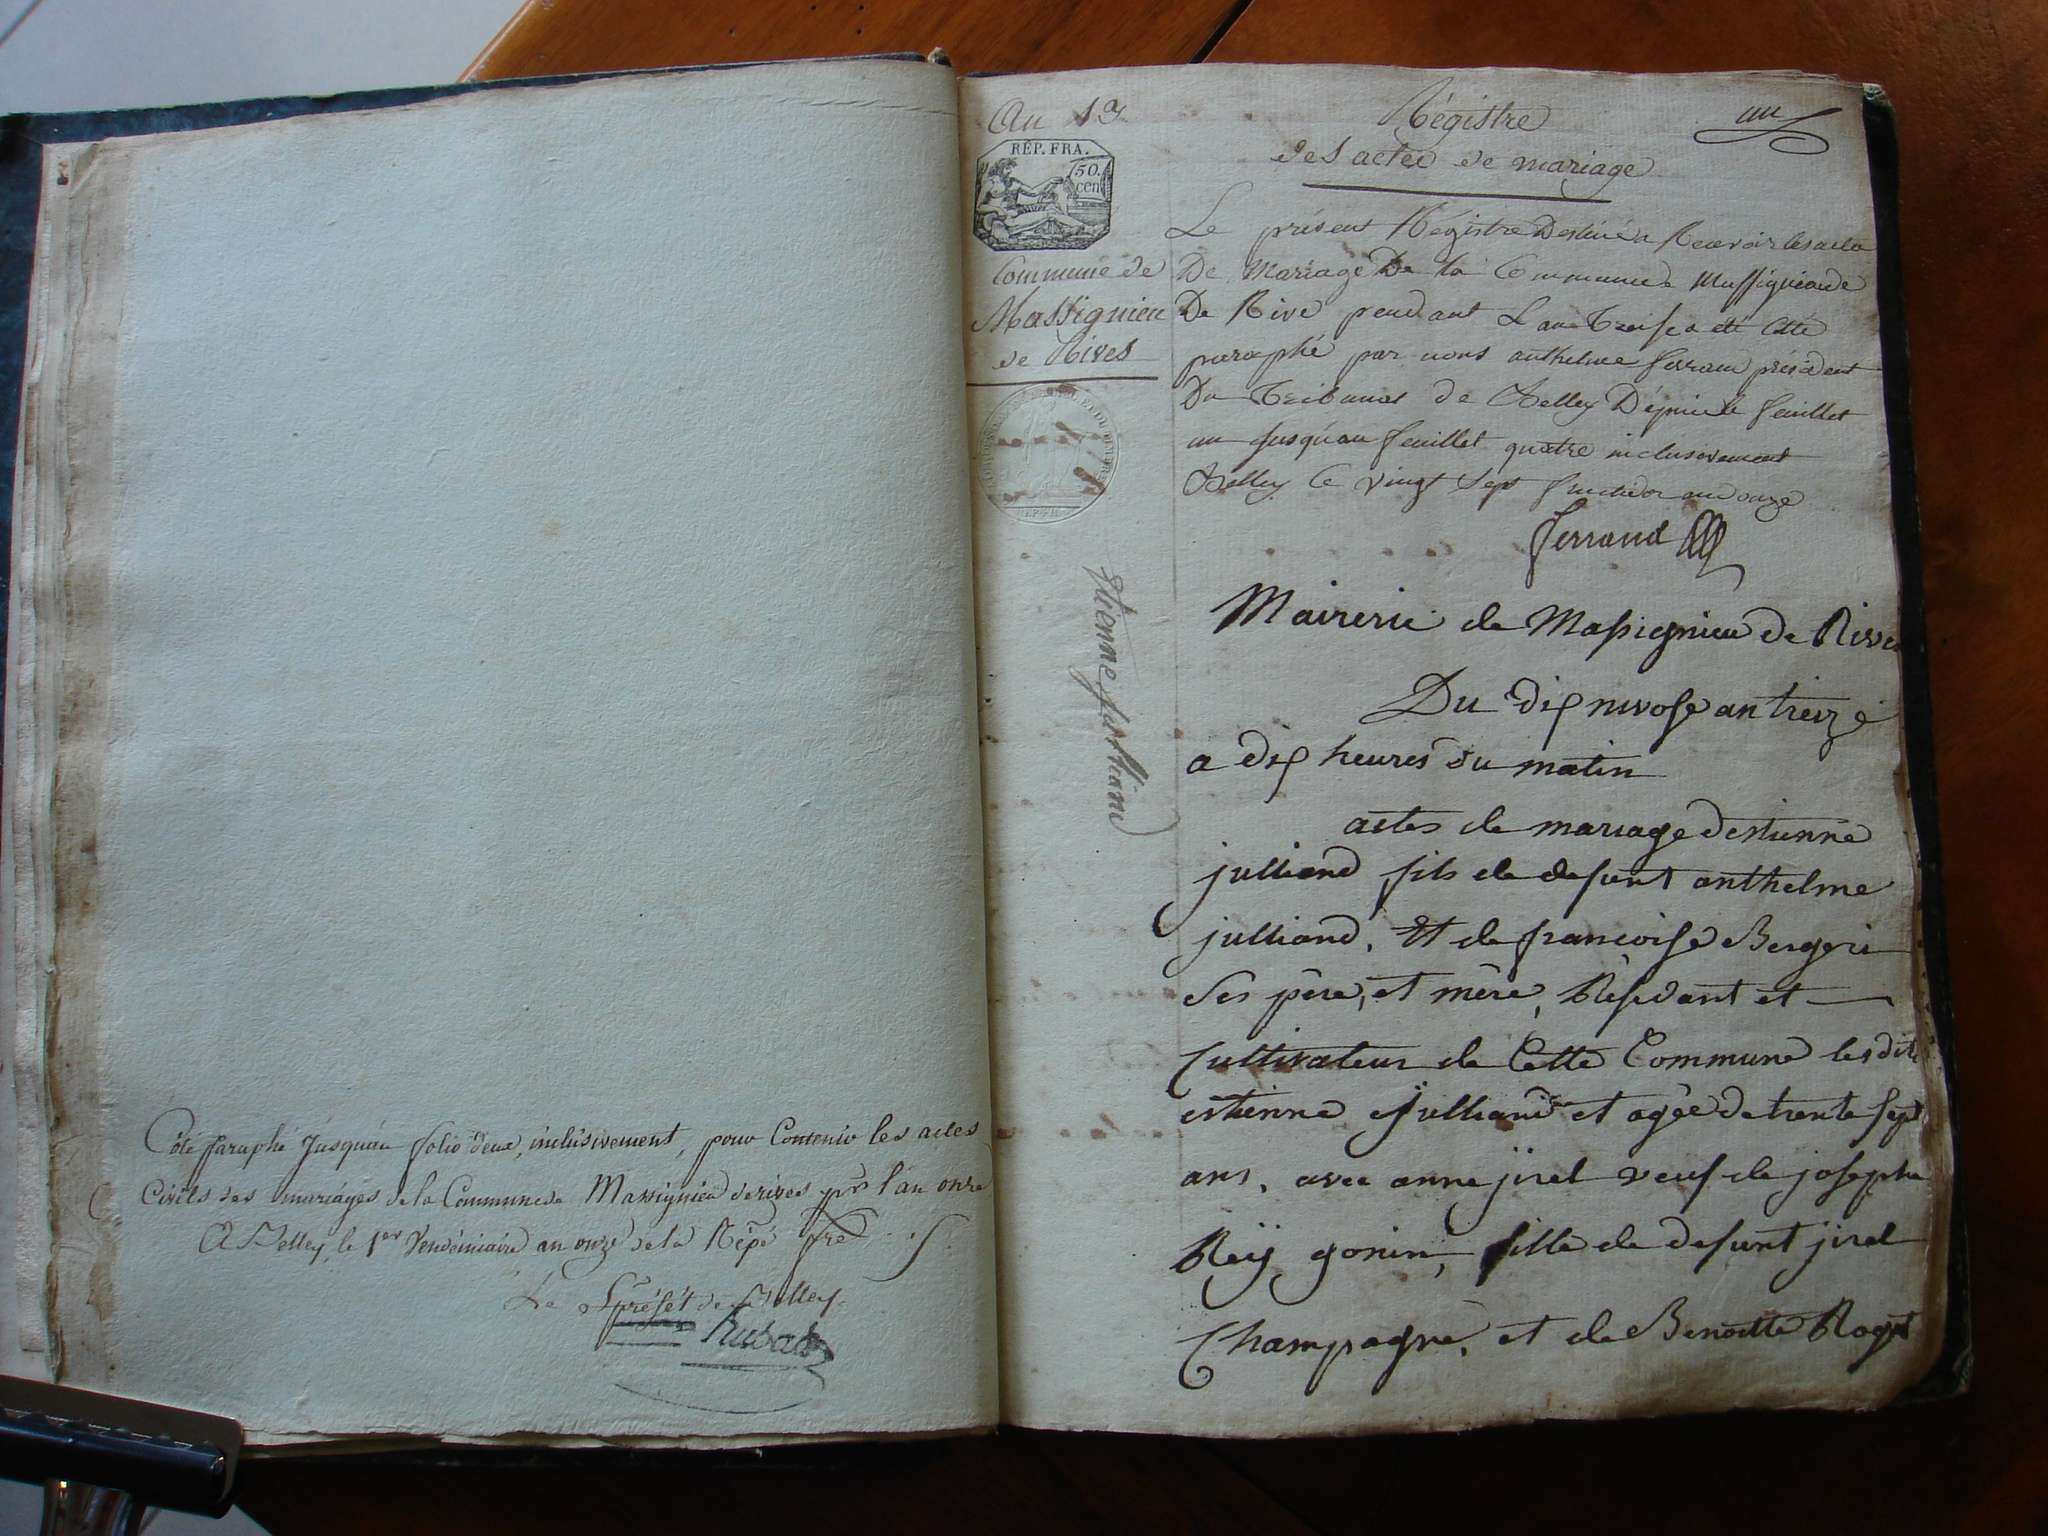 Coté Paraphé Jusqu'au folio deux, inclusivement, pour Contenir les actes
Civils des mariages de la Commune de Massignieu de rives pr l'an onze
A Belley, le 1er Vendémiaire an onze de la Rép.e fre
Le S préfét de Belley
An 13
RÉP. FRA.
50.
cen
Commune de
Massignieu
de Rives
Etienne
Régistre
un
des actes de mariage
Le présent Régistre Destiné a Recevoir les actes
De Mariage De la Commune de Massignieu de
De Rive pendant L'an Treise a été Cotté
paraphé par nous anthelme ferrand président
Du Tribunal de Belley Dépuis le feuillet
un Jusqu'au feuillet quatre inclusivement
Belley Ce Vingt Sept fructidor an douze
ferrand
Mairerie de Massignieu de Rives
Du dix nivose an treize
a dix heures du matin
actes de mariage d'estienne
julliand fils de defunt anthelme
julliand, Et de francoise Bergeri
Ses père, et mère, Résidant et
Cultivateur de Cette Commune les dit
estienne Julliand et agée de trente sept
ans, avec anne jirel veuf de josephe
Reÿ gonin, fille de defunt jirel
Champagne, et de Benoitte Roget